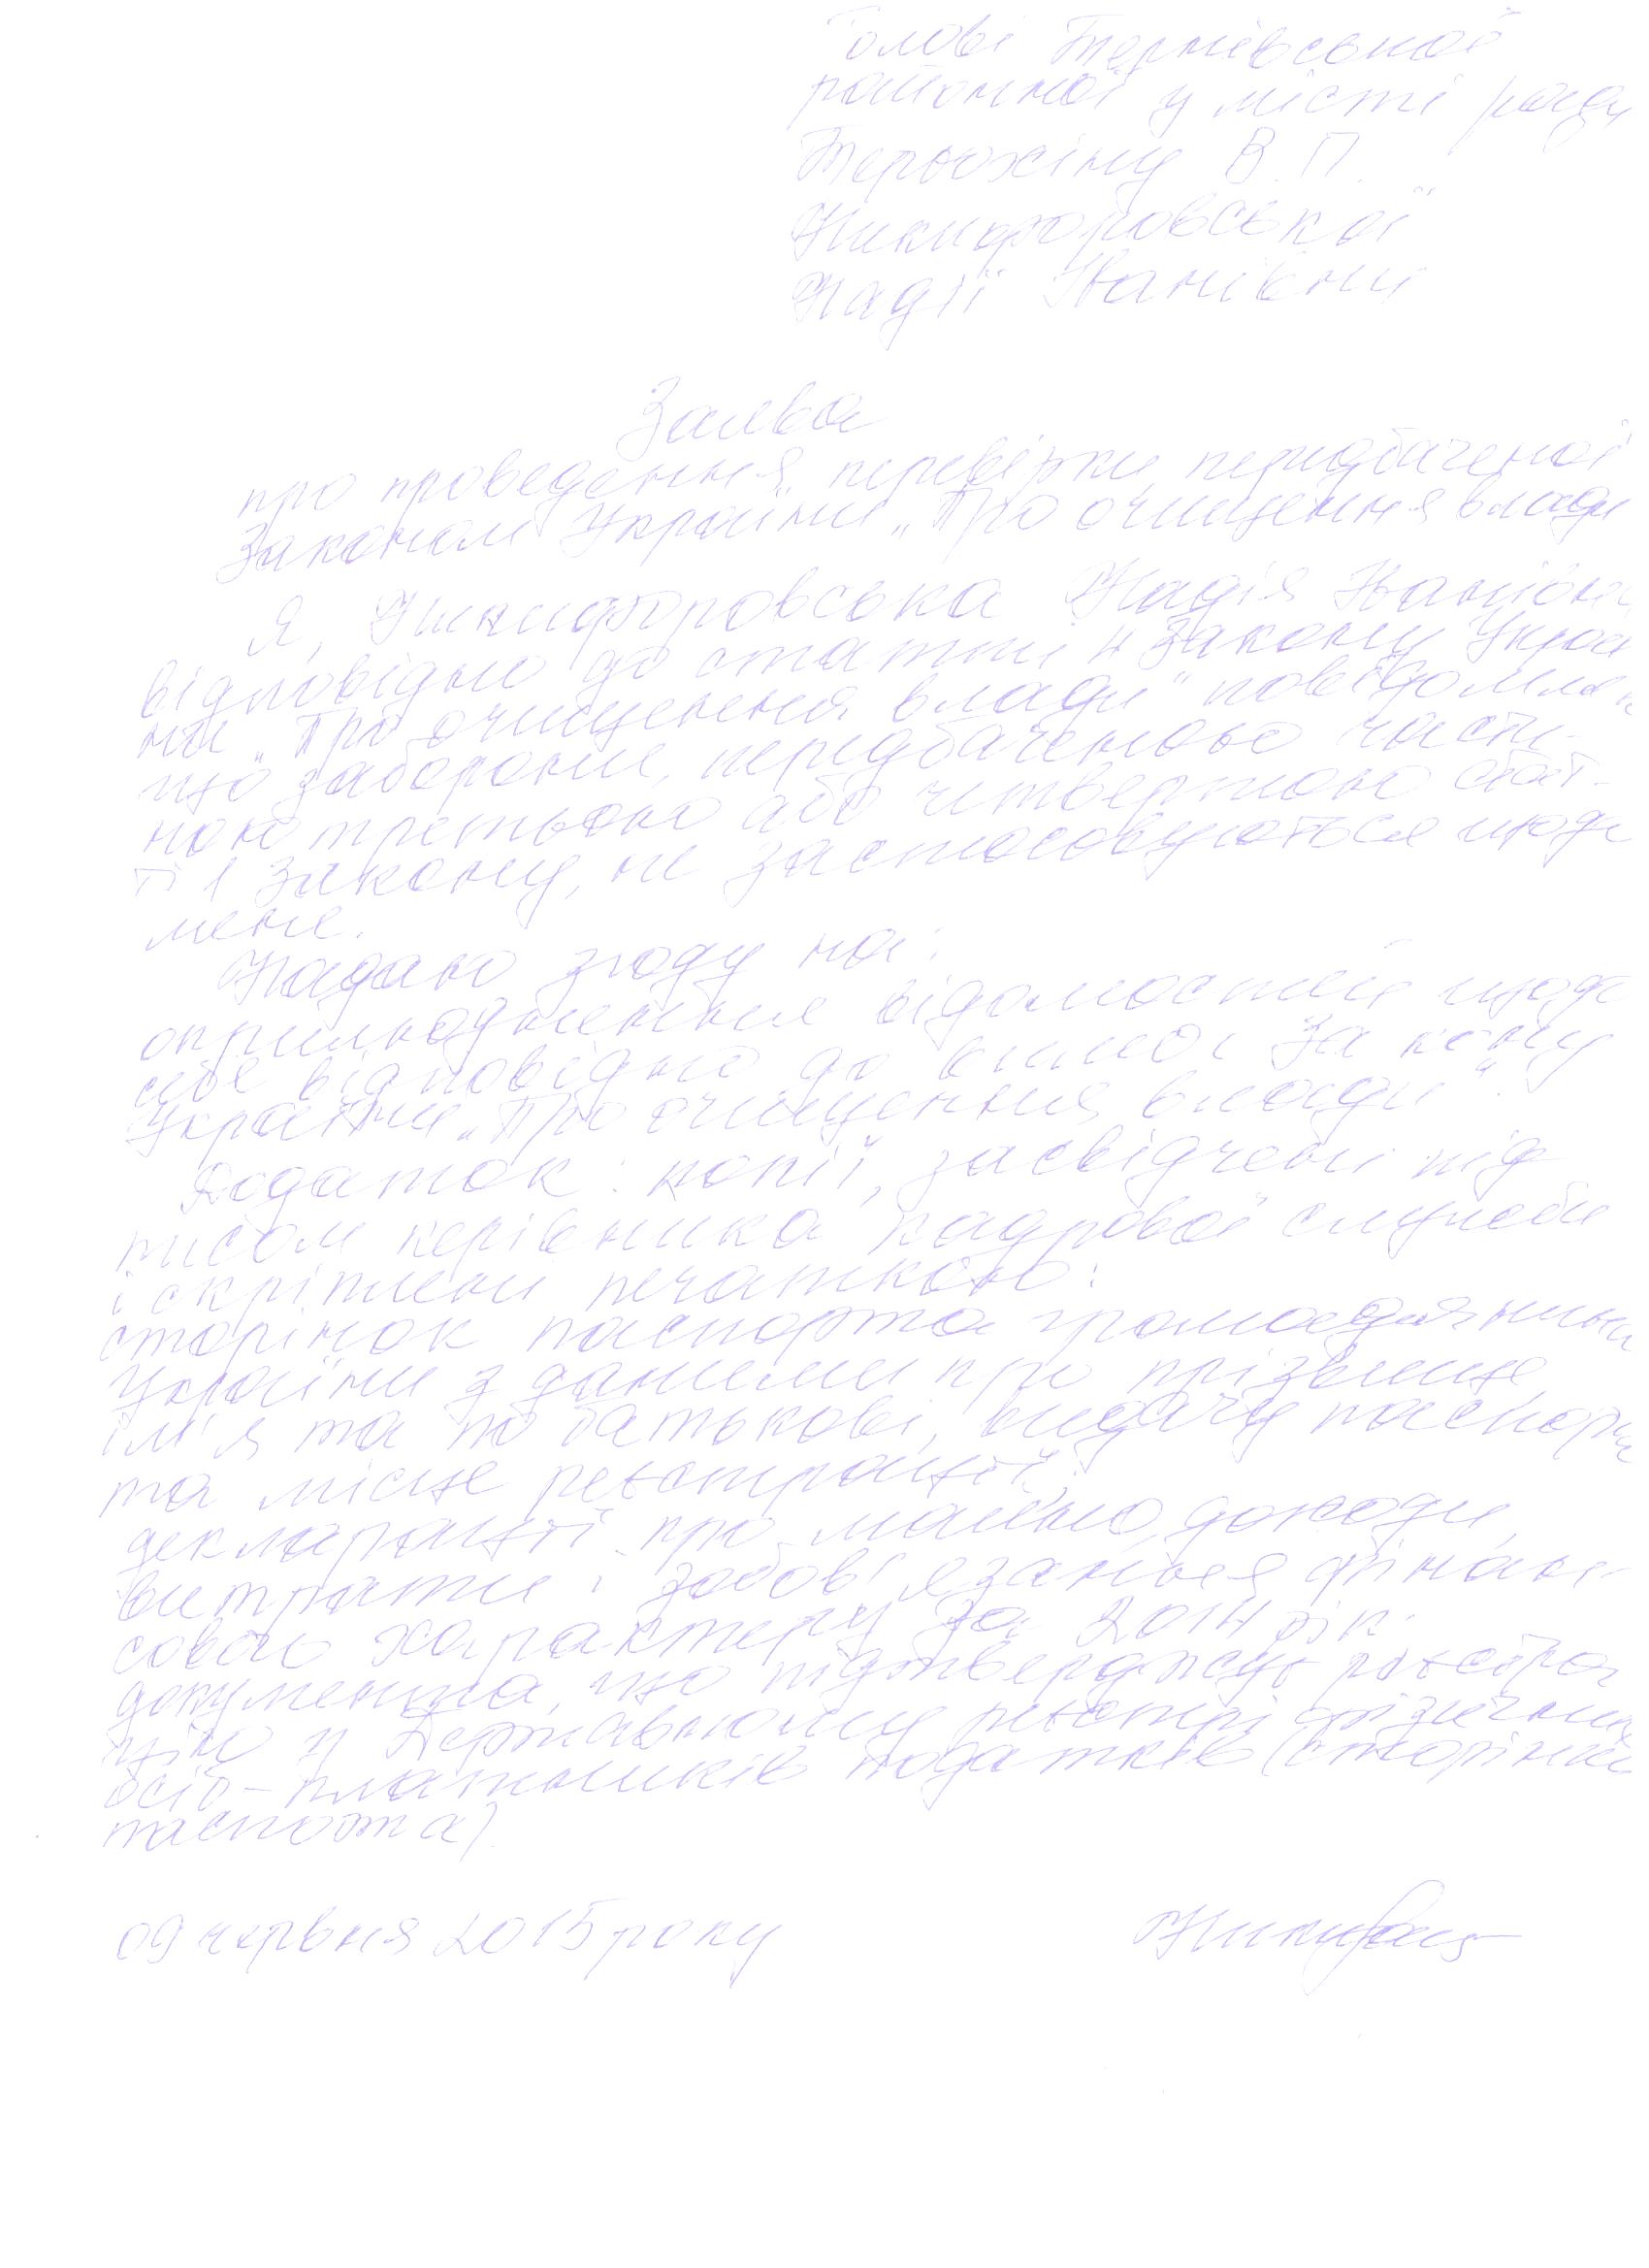 Голові Тернівської
районної у місті ради
Терьохіну В. П.
Никифоровської
Надії Іванівни
Заява
про проведення перевірки, передбаченої
Законом України „Про очищення влади
Я, Никифоровська Надія Іванівна
відповідно до статті 4 Закону Украї
ни „Про очищення влади" повідомляю
що заборони, передбаченою части-
ною третьою або четвертою стат-
ті 1 Закону, не застосовуються щодо
мене.
Надаю згоду на:
оприлюднення відомостей щодо
себе відповідно до вимог Закону
України „Про очищення влади".
Додаток: копії, засвідчені під
писом керівника кадрової служби
і скріплені печаткою:
сторінок паспорта громадянина
України з даними про прізвище
ім'я та по батькові, видачу паспорта
та місце реєстрації;
декларації про майно, доходи,
витрати і зобов'язання фінан-
сового характеру за 2014 рік.
документа, що підтверджує реєстра
цію у Державному реєстрі фізичних
осіб-платників податків (сторінка
паспорта)
09 червня 2015 року